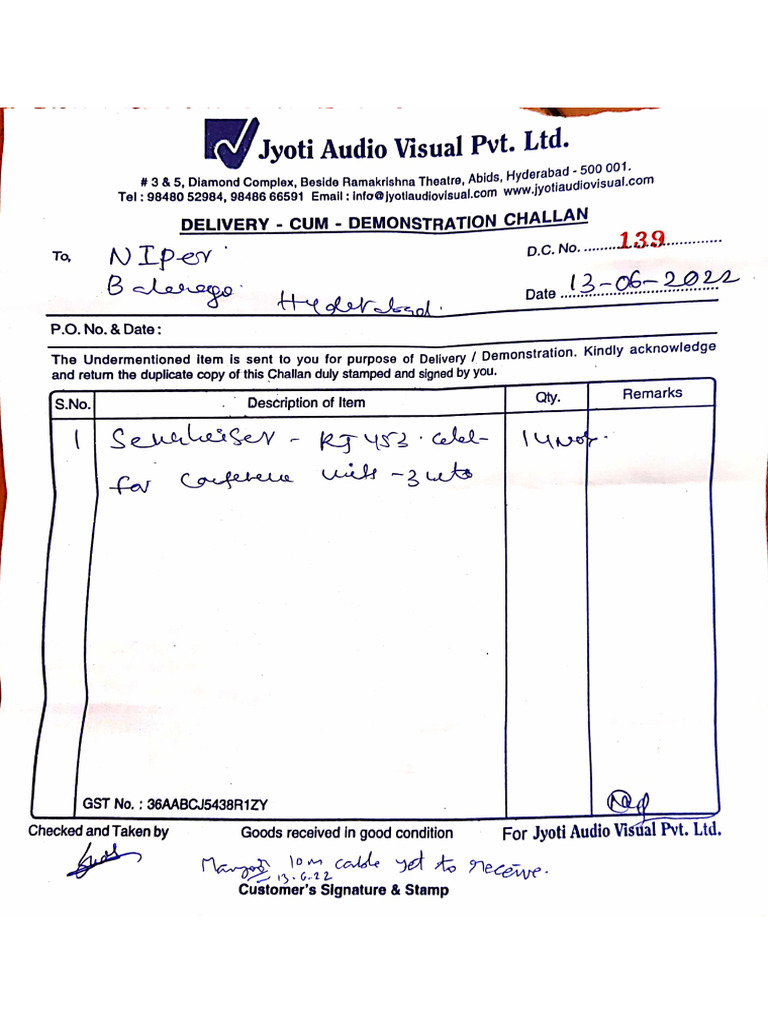 Jyoti Audio Visual Pvt. Ltd.
# 3 & 5, Diamond Complex, Beside Ramakrishna Theatre, Abids, Hyderabad - 500 001.
Tel : 98480 52984, 98486 66591 Email : info@jyotiaudiovisual.com www.jyotiaudiovisual.com
DELIVERY - CUM - DEMONSTRATION CHALLAN
To, NIPER
D.C. No. 139
Hyderabad.
Date 13-06-2022
P.O. No. & Date :
The Undermentioned item is sent to you for purpose of Delivery / Demonstration. Kindly acknowledge
and return the duplicate copy of this Challan duly stamped and signed by you.
S.No. Description of Item Qty. Remarks
1 Sennheiser - RJ 453 14 Nos.
for Conference units - 3
GST No. : 36AABCJ5438R1ZY
Checked and Taken by Goods received in good condition For Jyoti Audio Visual Pvt. Ltd.
10m cable yet to receive.
13.6.22
Customer's Signature & Stamp